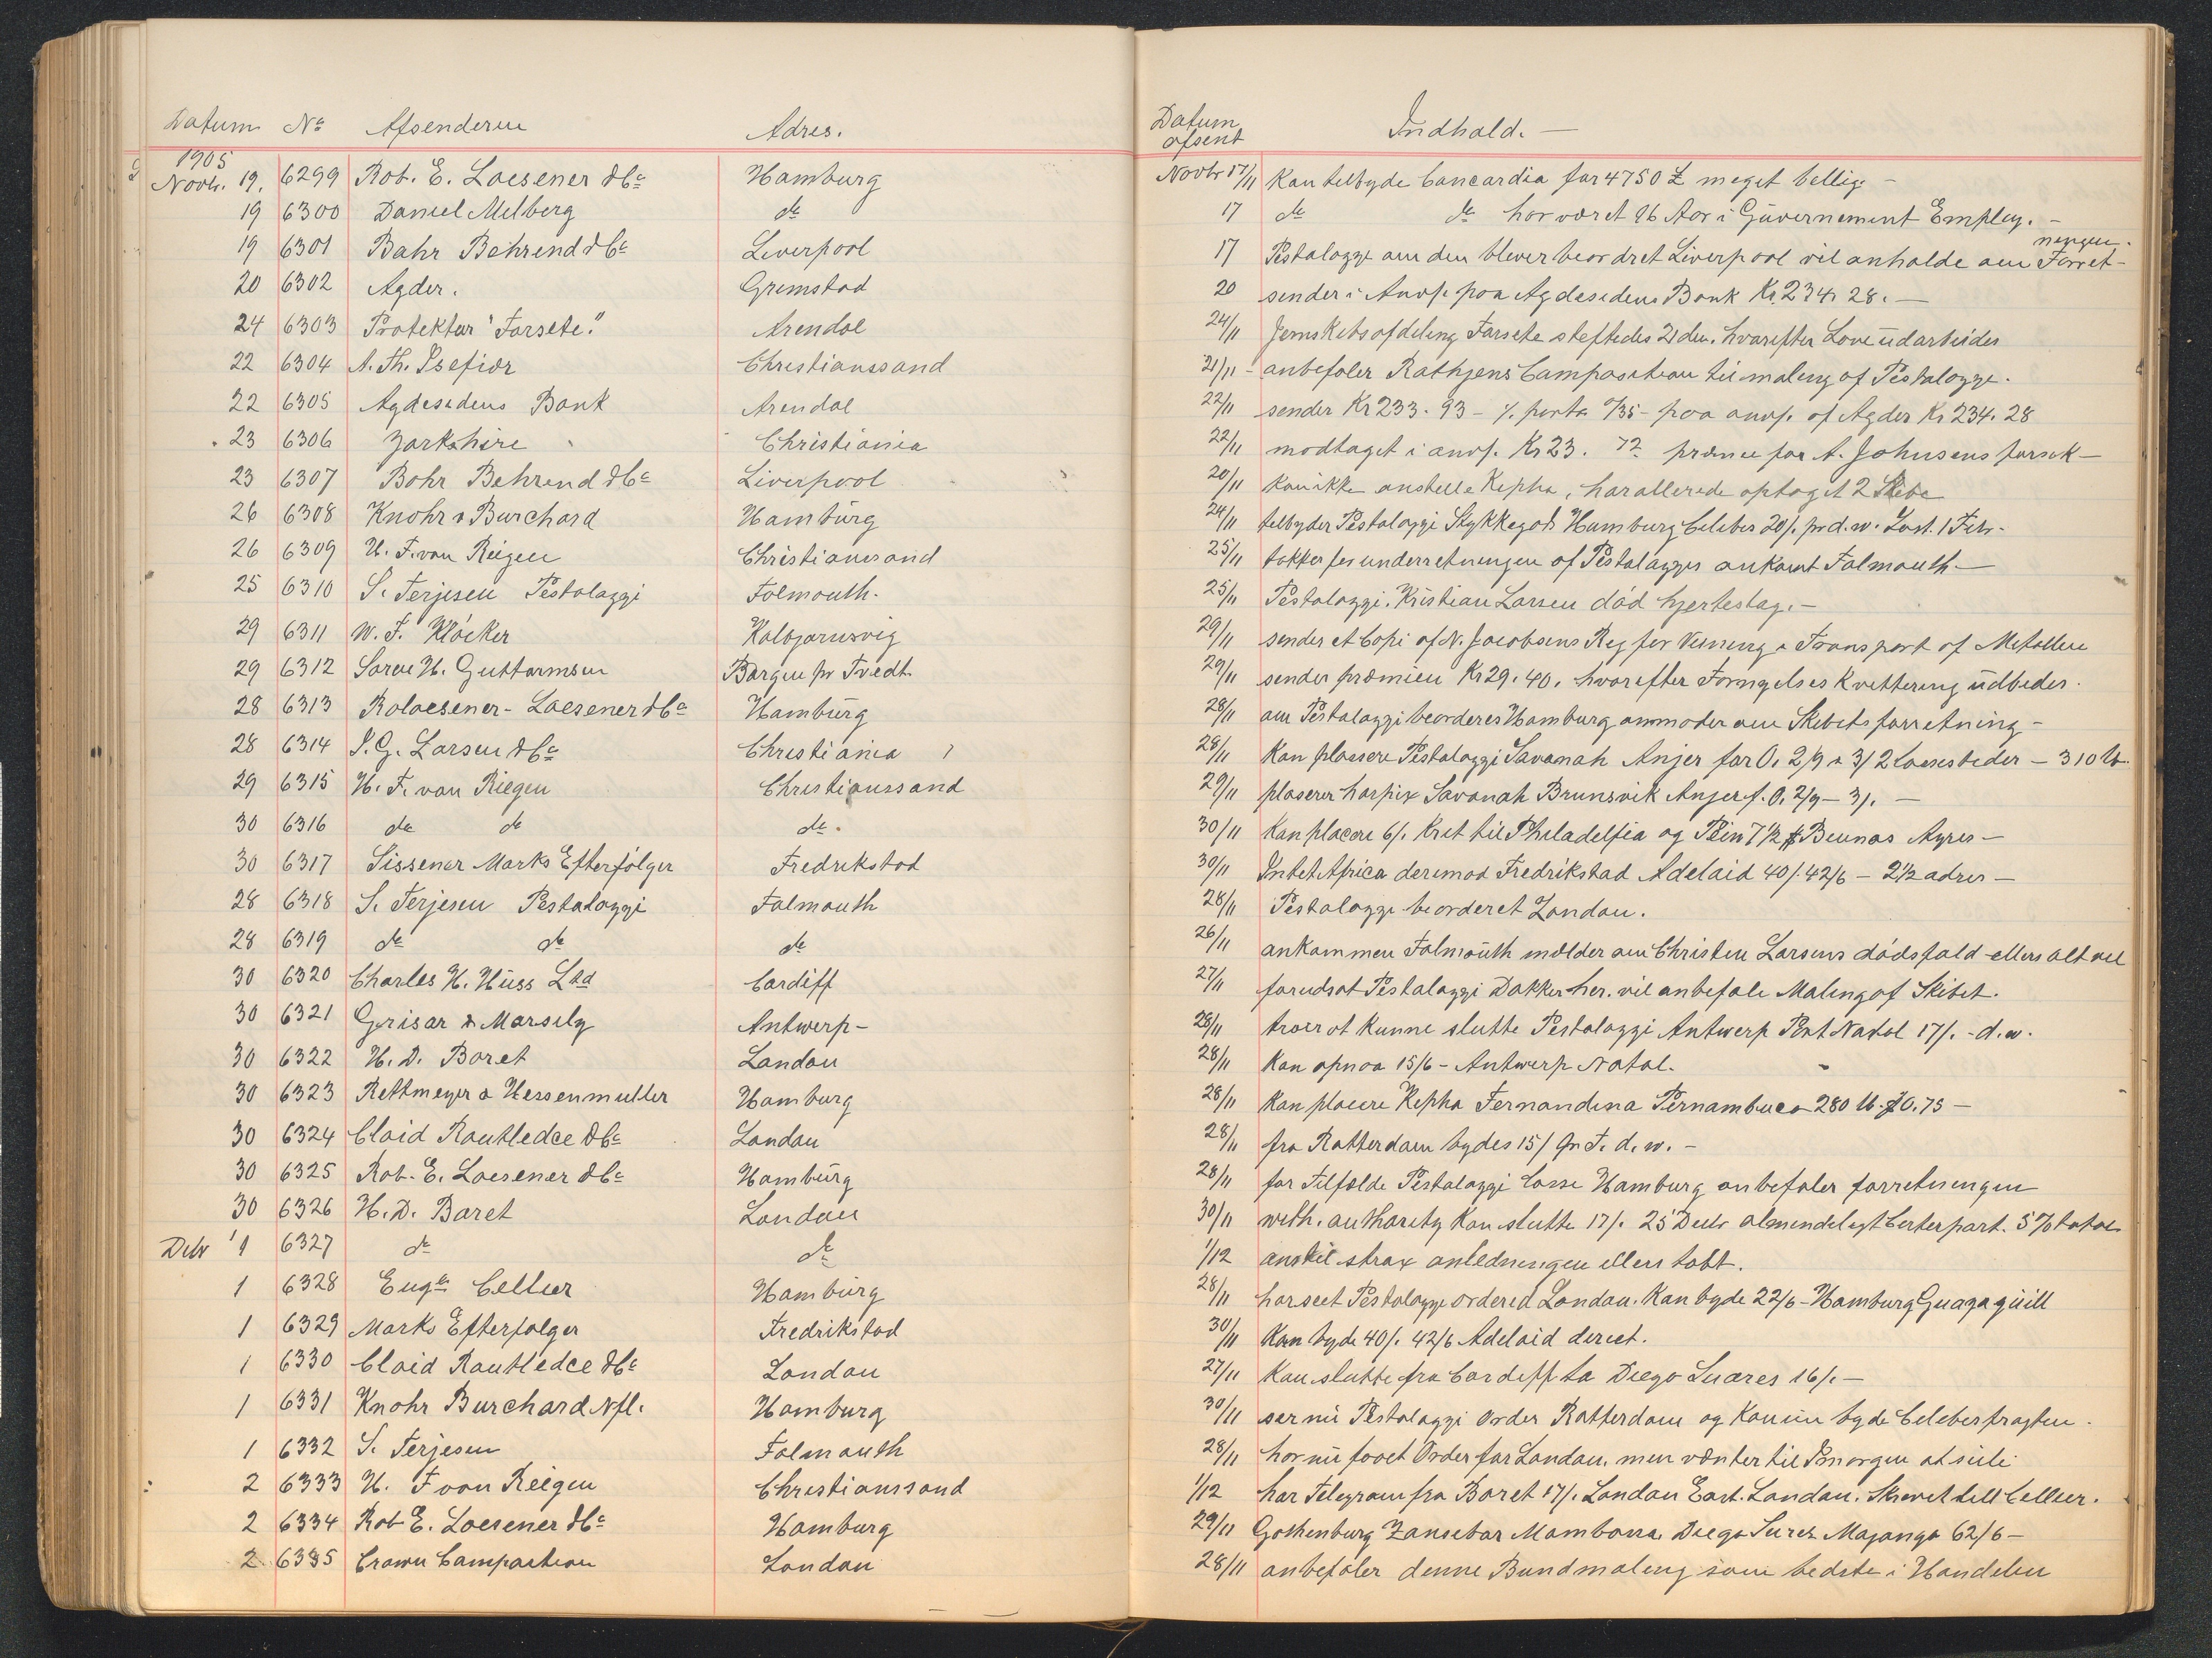 Datum No Afsenderen Adres.
1905
Novbr. 19. 6299 Rob. E. Loesener & Co Hamburg
19 6300 Daniel Milberg do
19 6301 Bahr Behrend & Co Liverpool
20 6302 Agder. Grimstad
24 6303 Protektor "Forsete." Arendal
22 6304 A. Th. Isefiær Christianssand
22 6305 Agdesidens Bank Arendal
23 6306 Yorkshire Christiania
23 6307 Bahr Behrend & Co Liverpool
26 6308 Knohr & Burchard Hamburg
26 6309 H. F. van Riegen Christiansand
25 6310 S. Terjesen Pestalozzi Falmouth.
29 6311 W. F. Klöcker Kolbjørnsvig
29 6312 Soren H. Guttormsen Borgen pr Tvedt.
28 6313 Roloesener - Loesener & Co Hamburg
28 6314 S. G. Larsen & Co Christiania
29 6315 H. F. van Riegen Christianssand
30 6316 do do do.
30 6317 Sissener Marks Efterfølger Fredrikstad
28 6318 S. Terjesen Pestalozzi Falmouth
28 6319 do do do
30 6320 Charles H. Huss Ltd Cardiff
30 6321 Grisar & Marsily Antwerp -
30 6322 H. D. Baret London
30 6323 Rettmeyer & Hessenmuller Hamburg
30 6324 Claid Routledce & Co London
30 6325 Rob. E. Loesener & Co Hamburg
30 6326 H. D. Baret London
Debr 1 6327 do do
1 6328 Eugen Cellier Hamburg
1 6329 Marks Efterfølger Fredrikstad
1 6330 Claid Routledce & Co London
1 6331 Knohr Burchard Nfl. Hamburg
1 6332 S. Terjesen Falmouth
2 6333 H. F van Riegen Christianssand
2 6334 Rob E. Loesener & Co Hamburg
2 6335 Crown Compastion London
Datum afsent Indhold. -
Novbr 17/11 Kan tilbyde Concordia for 4750 £ meget billig -
17 do do har været 16 Aar i Guvernement Employ. -
17 Pestalozzi om den blever beordret Liverpool vil anholde om Forret-
ningen.
20 sender i Anvp. paa Agdesidens Bank Kr 234. 28. -
24/11 Jernskibsafdeling Forsete steftedes 21 den. hvorefter Love udarbeides
21/11 - anbefaler Rathjens Composition til maling af Pestalozzi.
22/11 sender Kr 233. 93 - % porto %35 - paa anvp. af Agder Kr 234. 28
22/11 modtaget i anvp. Kr 23. 72 præmie for A. Johnsens forsik -
20/11 Kan ikke anstelle Kepha, har allerede optaget 2 Skibe
24/11 telbyder Pestalozzi Stykkegods Hamburg Caleber 20/. pr d. w. Last. 1 Febr.
25/11 takker for underretningen af Pestalozzis ankomst Falmouth -
25/11 Pestalozzi. Kristian Larsen død hjertestag. -
29/11 sender et Copi af N. Jacobsens Reg for Veining & Transport af Metallen
29/11 sender præmien Kr 29. 40. hvorefter Fornyelses Kvittering udbedes.
28/11 om Pestalozzi beorderes Hamburg anmoder om Skibets forretning -
28/11 Kan plasere Pestalozzi Savanah Anjer for O. 2/9 a 3/ 2 Lossesteder - 310 lb.
29/11 plaserer harpix Savanah Brunsvik Anjer f. O. 2/9 - 3/. -
30/11 Kan placere 6/. Kret til Philadelfia og Pein 7 1/2 $ Beunos Ayres -
30/11 Intet Africa derimod Fredrikstad Adelaid 40/. 42/6 - 2 1/2 adres -
28/11 Pestalozzi beorderet London.
26/11 ankommen Falmouth mælder om Christen Larsens dødsfald ellers alt vel
27/11 forudsat Pestalozzi Dakker her. vil anbefale Maling af Skibet.
28/11 troer at kunne slutte Pestalozzi Antwerp Port Natal 17/. - d. w.
28/11 Kan opnaa 15/6 - Antwerp Natal.
28/11 Kan placere Kepha Fernandina Pernambuco 280 lb. $ 10.75 -
28/11 fra Rotterdam bydes 15/ pr T. d. w. -
28/11 for Tilfælde Pestalozzi losse Hamburg anbefaler forretningen
30/11 with. authority Kan slutte 17/. 25 Decbr almindeligt Certepart. 5 % total
1/12 anstil strax anledningen ellers tabt.
28/11 har seet Pestalozzi ordered London. Kan byde 22/6 - Hamburg Guagaquill
30/11 Kan byde 40/. 42/6 Adelaid direct.
27/11 Kan slutte fra Cardiff to Diego Suares 16/. -
30/11 ser nu Pestalozzi order Rotterdam og Kan nu byde Caleberfragten.
28/11 har nu faaet Order for London. men vænter til Imorgen at seile
1/12 har Telegram fra Baret 17/. London East. London. Skrevet till Cellier.
29/11 Gothenburg Zansebar Mombassa Diego Surez Majanga 62/6 -
28/11 anbefaler denne Bundmaling som bedste i Handelen